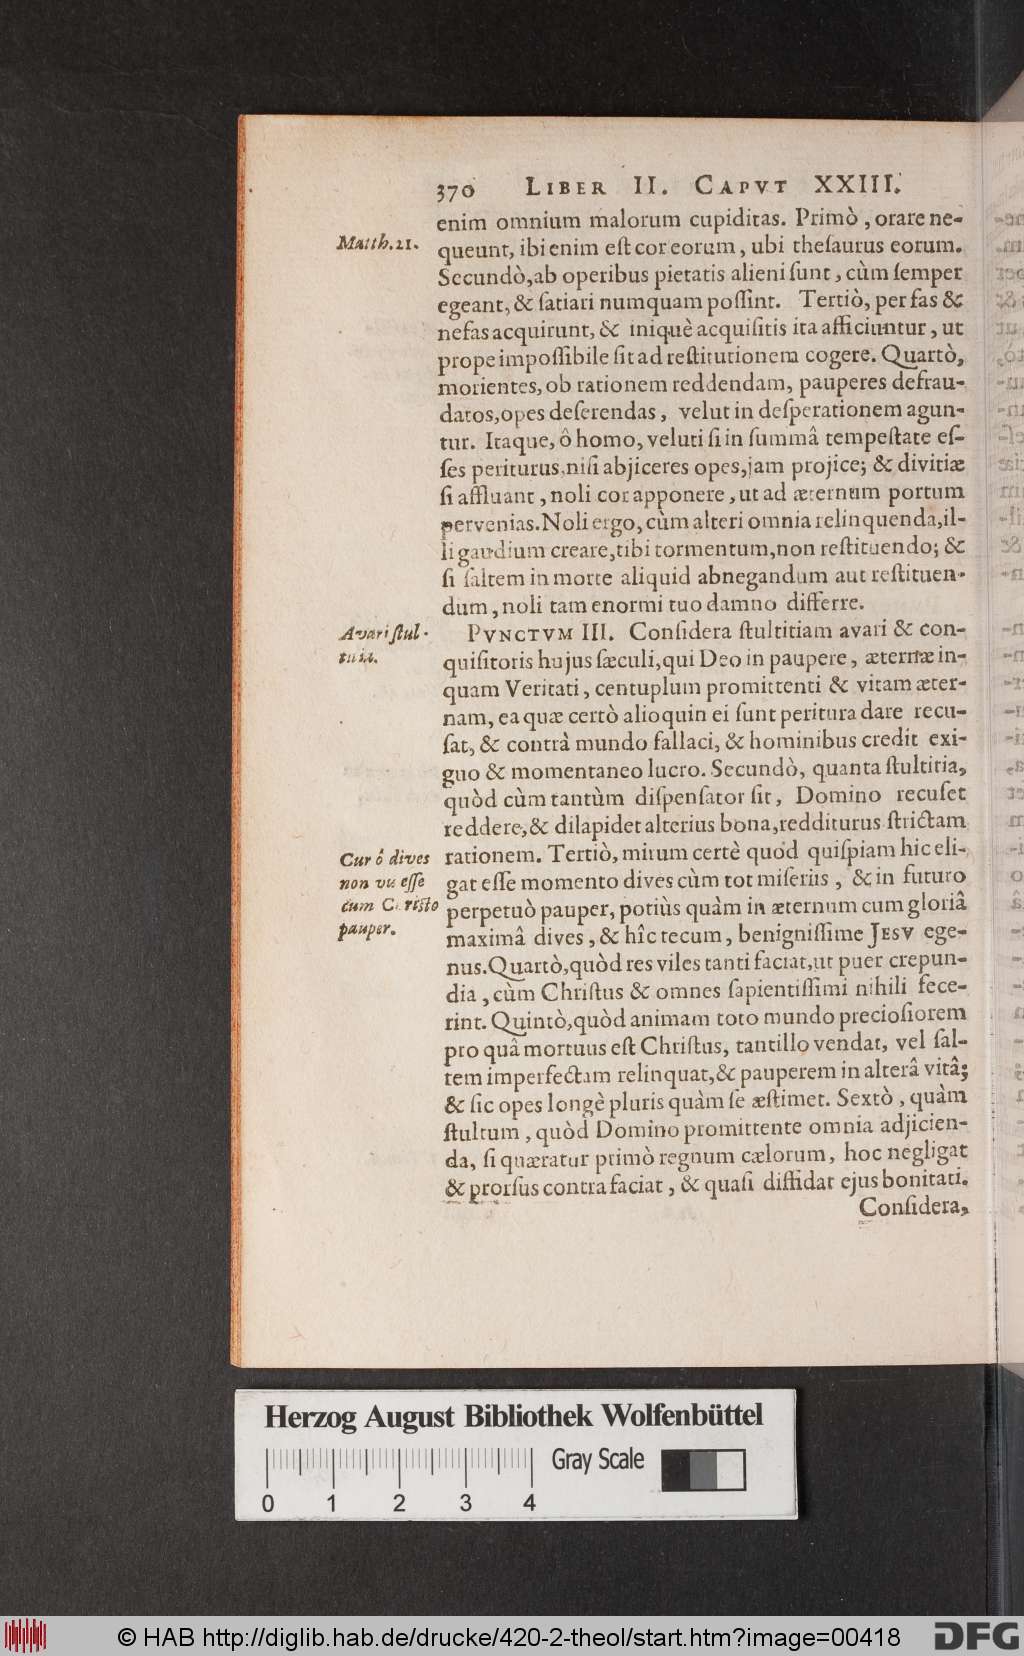 370 LIBER II. CAPVT XXIII.
enim omnium malorum cupiditas. Primò, orare ne-
Matth. 21.
queunt, ibi enim eſt cor eorum, ubi theſaurus eorum.
Secundò, ab operibus pietatis alieni ſunt, cùm ſemper
egeant, & ſatiari numquam poſſint. Tertiò, per fas &
nefas acquirunt, & iniquè acquiſitis ita afficiuntur, ut
prope impoſſibile ſit ad reſtitutionem cogere. Quartò,
morientes, ob rationem reddendam, pauperes defrau-
datos, opes deſerendas, velut in deſperationem agun-
tur. Itaque, ô homo, veluti ſi in ſummâ tempeſtate eſ-
ſes periturus, niſi abjiceres opes, jam projice; & divitiæ
ſi affluant, noli cor apponere, ut ad æternum portum
pervenias. Noli ergo, cùm alteri omnia relinquenda, il-
li gaudium creare, tibi tormentum, non reſtituendo; &
ſi ſaltem in morte aliquid abnegandum aut reſtituen-
dum, noli tam enormi tuo damno differre.
Avari ſtul-
titia.
PVNCTVM III. Conſidera ſtultitiam avari & con-
quiſitoris hujus ſæculi, qui Deo in paupere, æternæ in-
quam Veritati, centuplum promittenti & vitam æter-
nam, ea quæ certò alioquin ei ſunt peritura dare recu-
ſat, & contrà mundo fallaci, & hominibus credit exi-
guo & momentaneo lucro. Secundò, quanta ſtultitia,
quòd cùm tantùm diſpenſator ſit, Domino recuſet
reddere, & dilapidet alterius bona, redditurus ſtrictam
Cur ô dives
non vis eſſe
cum Christo
pauper.
rationem. Tertiò, mirum certè quod quiſpiam hic eli-
gat eſſe momento dives cùm tot miſeriis, & in futuro
perpetuò pauper, potiùs quàm in æternum cum gloriâ
maximâ dives, & hîc tecum, benigniſſime JESV ege-
nus. Quartò, quòd res viles tanti faciat, ut puer crepun-
dia, cùm Chriſtus & omnes ſapientiſſimi nihili fece-
rint. Quintò, quòd animam toto mundo precioſiorem
pro quâ mortuus eſt Chriſtus, tantillo vendat, vel ſal-
tem imperfectam relinquat, & pauperem in alterâ vitâ;
& ſic opes longè pluris quàm ſe æſtimet. Sextò, quàm
ſtultum, quòd Domino promittente omnia adjicien-
da, ſi quæratur primò regnum cælorum, hoc negligat
& prorſus contra faciat, & quaſi diffidat ejus bonitati.
Conſidera,
Herzog August Bibliothek Wolfenbüttel
0 1 2 3 4
Gray Scale
© HAB http://diglib.hab.de/drucke/420-2-theol/start.htm?image=00418
DFG